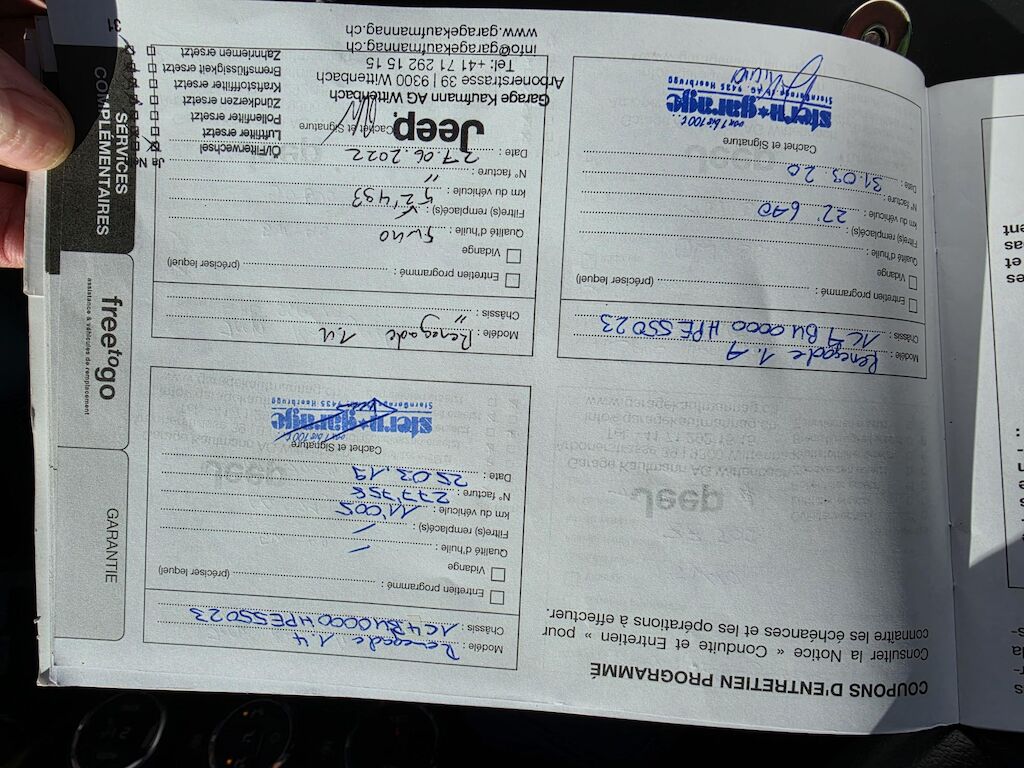 COUPONS D'ENTRETIEN PROGRAMMÉ
Consulter la Notice « Conduite et Entretien » pour
connaître les échéances et les opérations à effectuer.
Modèle : Renegade 1.4
Châssis : 1C4BU0000HPE55023
Entretien programmé : (préciser lequel)
Vidange
Qualité d'huile :
Filtre(s) remplacé(s) :
km du véhicule : 11'005
N° facture : 277'756
Date : 25.03.19
Cachet et Signature
von 1 bis 100 t.
stern garage
SternGarage 9435 Heerbrugg
Modèle : Renegade 1.4
Châssis : 1C4BU0000HPE55023
Entretien programmé : (préciser lequel)
Vidange
Qualité d'huile :
Filtre(s) remplacé(s) :
km du véhicule : 22'640
N° facture :
Date : 31.03.20
Cachet et Signature
von 1 bis 100 t.
stern garage
SternGarage AG, 9435 Heerbrugg
Modèle : Renegade 1.4
Châssis : "
Entretien programmé : (préciser lequel)
Vidange
Qualité d'huile : 5W40
Filtre(s) remplacé(s) :
km du véhicule : 52'493
N° facture : "
Date : 27.06.2022
Cachet et Signature
Jeep
Garage Kaufmann AG Wittenbach
Arbonerstrasse 39 | 9300 Wittenbach
Tel: +41 71 292 15 15
info@garagekaufmannag.ch
www.garagekaufmannag.ch
Ja Nein
Öl/Filterwechsel
Luftfilter ersetzt
Pollenfilter ersetzt
Zündkerzen ersetzt
Kraftstofffilter ersetzt
Bremsflüssigkeit ersetzt
Zahnriemen ersetzt
31
SERVICES
COMPLÉMENTAIRES
freetogo
assistance & véhicules de remplacement
GARANTIE